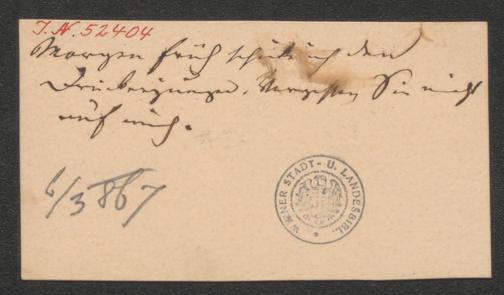 J.N. 52404
Morgen früh schicke ich den
Druckerjungen. Vergessen Sie nicht
auf mich.
6/3 867
WIENER STADT- U. LANDESBIBL.